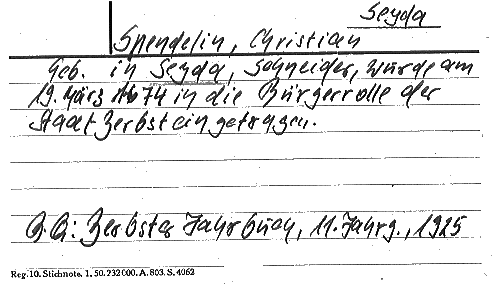 Seyda
Spendelin, Christian
Geb. in Seyda, Schneider, wurde am
19. März 1674 in die Bürgerrolle der
Stadt Zerbst eingetragen.
B.Q.: Zerbster Jahrbuch, 11. Jahrg., 1925
Reg. 10. Stichnote. 1. 50. 232000. A. 803. S. 4062